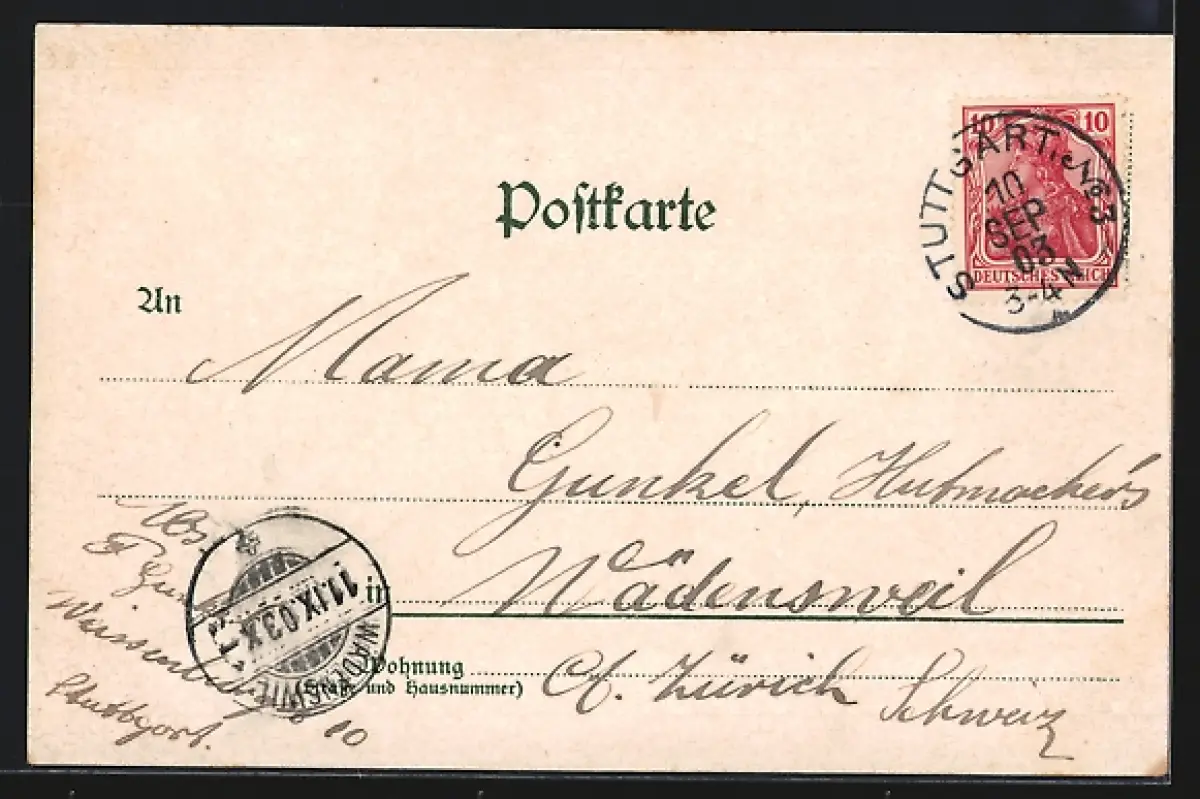 10 10
STUTTGART. No 3
10
SEP
03
3-4 N
DEUTSCHES REICH
Poſtkarte
An
Mama
Gunkel, Hutmachers
in Wädensweil
Wohnung
(Straße und Hausnummer)
Ct. Zürich
Schweiz
Abs.
Stuttgart.
10
11.IX.03.X
WÄDENSWIL